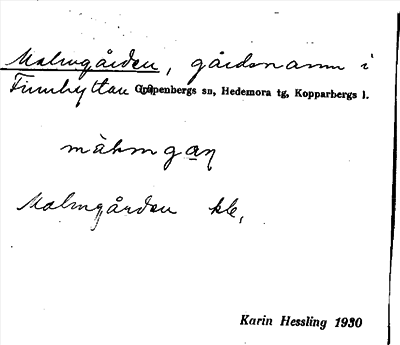 Malmgården, gårdsnamn i
Finnhyttan Garpenbergs sn, Hedemora tg, Kopparbergs l.
màhmgaη
Malmgården kle,
Karin Hessling 1930